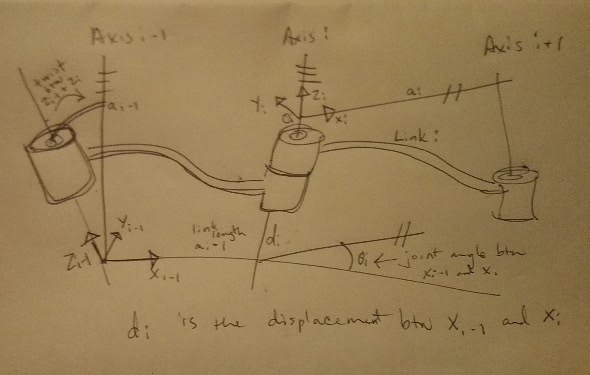 Axis i-1
Axis i
Axis i+1
twist
Zi
ai-1
Yi
Zi
Xi
ai
Link i
Yi-1
Zi-1
Xi-1
link
length
ai-1
di
θi ← joint angle btw
Xi-1 and Xi
di is the displacement btw Xi-1 and Xi